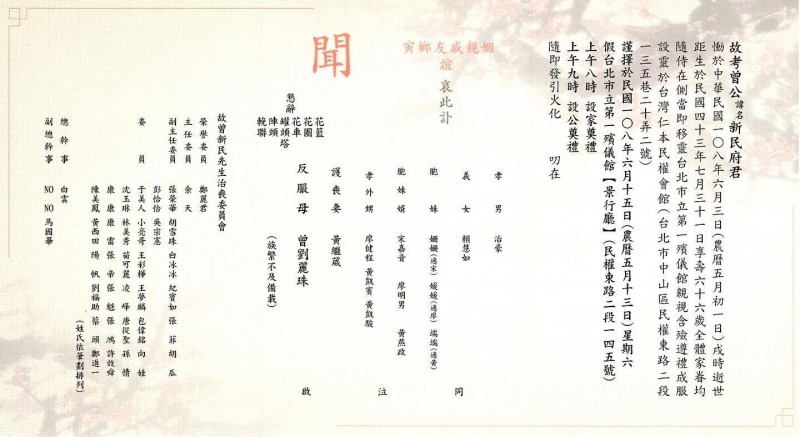 故考曾公諱名新民府君
慟於中華民國一〇八年六月三日(農曆五月初一日)戌時逝世
距生於民國四十三年七月三十一日享壽六十六歲全體家眷均
隨侍在側當即移靈台北市立第一殯儀館親視含殮遵禮成服
設靈於台灣仁本民權會館(台北市中山區民權東路二段
一三五巷二十弄二號)
謹擇於民國一〇八年六月十五日(農曆五月十三日)星期六
假台北市立第一殯儀館【景行廳】(民權東路二段一四五號)
上午八時 設家奠禮
上午九時 設公奠禮
隨即發引火化 叨在
姻親戚友鄉寅
誼 哀此訃
聞
孝男 治豪
義女 賴慧如
胞妹 姍姍(適宋) 媛媛(適廖) 端端(適黃)
胞妹婿 宋嘉音 廖明男 黃燕政
孝外甥 廖健程 黃凱賓 黃凱駿
護喪妻 黃繼葳
反服母 曾劉麗珠
(族繁不及備載)
同 泣 啟
懇辭
花籃
花圈
花車
罐頭塔
陣頭
輓聯
故曾新民先生治喪委員會
榮譽委員 鄭麗君
主任委員 余天
副主任委員 張榮華 胡雪珠 白冰冰 紀寶如 張菲 胡瓜
彭恰恰 吳宗憲
委員 于美人 小亮哥 王彩樺 王夢麟 包偉銘 向娃
沈玉琳 林美秀 苗可麗 凌峰 唐從聖 孫情
康康 康雷 張帝 張魁 張鴻 許效舜
陳美鳳 黃西田 陽帆 劉福助 蔡頭 鄭進一
(姓氏依筆劃排列)
總幹事 白雲
副總幹事 NO NO 馬國畢